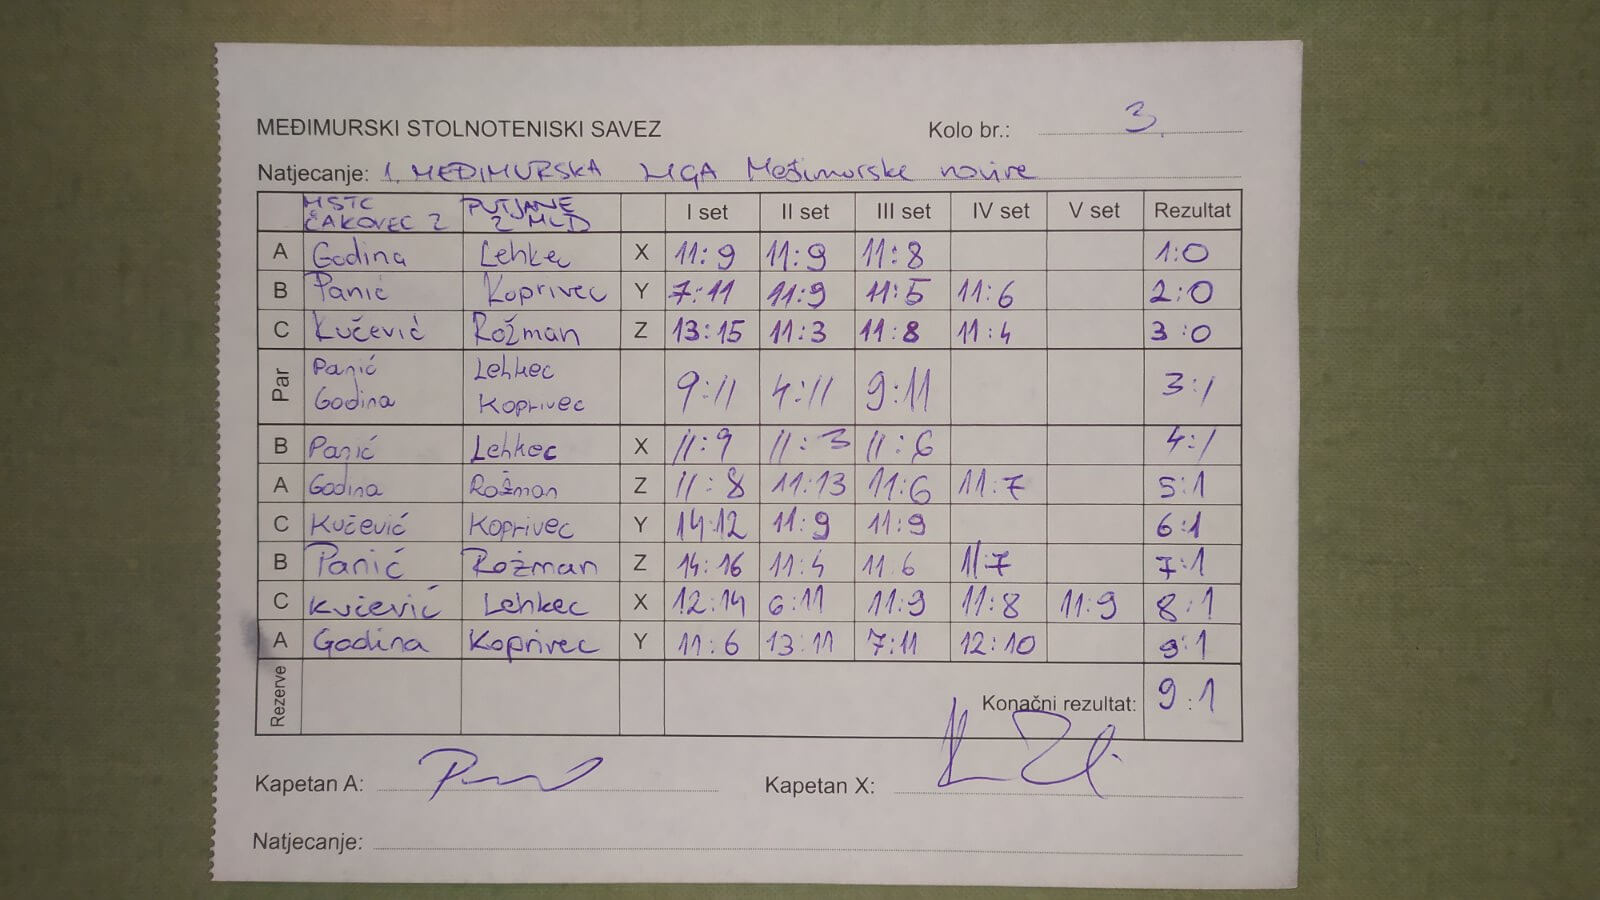 MEĐIMURSKI STOLNOTENISKI SAVEZ Kolo br.: 3.
Natjecanje: 1. MEĐIMURSKA LIGA Međimurske novine
MSTC ČAKOVEC 2 PUTJANE 2 MLD I set II set III set IV set V set Rezultat
A Godina Lehkec X 11:9 11:9 11:8 1:0
B Panić Koprivec Y 7:11 11:9 11:5 11:6 2:0
C Kučević Rožman Z 13:15 11:3 11:8 11:4 3:0
Par Panić Godina Lehkec Koprivec 9:11 4:11 9:11 3:1
B Panić Lehkec X 11:9 11:3 11:6 4:1
A Godina Rožman Z 11:8 11:13 11:6 11:7 5:1
C Kučević Koprivec Y 14:12 11:9 11:9 6:1
B Panić Rožman Z 14:16 11:4 11:6 11:7 7:1
C Kučević Lehkec X 12:14 6:11 11:9 11:8 11:9 8:1
A Godina Koprivec Y 11:6 13:11 7:11 12:10 9:1
Rezerve Konačni rezultat: 9:1
Kapetan A: Kapetan X:
Natjecanje: